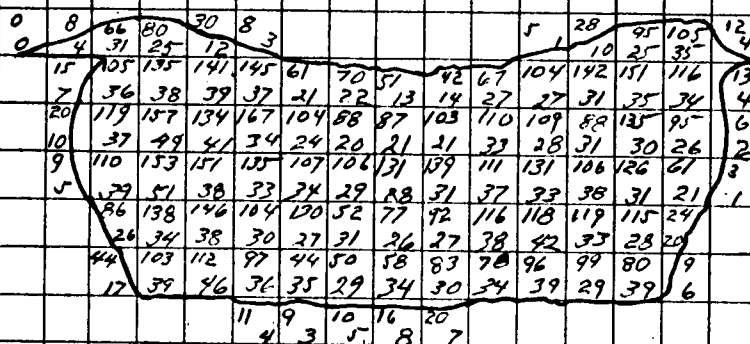 0 8 66 80 30 8 5 28 95 105 12
0 4 31 25 12 3 1 10 25 35 4
15 105 135 141 145 61 70 51 42 67 104 142 151 116 13
7 36 38 39 37 21 22 13 14 27 27 31 35 34 4
20 119 157 134 167 104 88 87 103 110 109 88 135 95 6
10 37 49 41 34 24 20 21 21 33 28 31 30 26 2
9 110 153 151 135 107 106 131 139 111 131 106 126 61 3
5 39 51 38 33 34 29 28 31 37 33 38 31 21 1
86 138 146 104 130 52 77 92 116 118 119 115 24
26 34 38 30 27 31 26 27 38 42 33 28 20
44 103 112 97 44 50 58 83 78 96 99 80 9
17 39 46 36 35 29 34 30 34 39 29 39 6
11 9 10 16 20
4 3 5 8 7